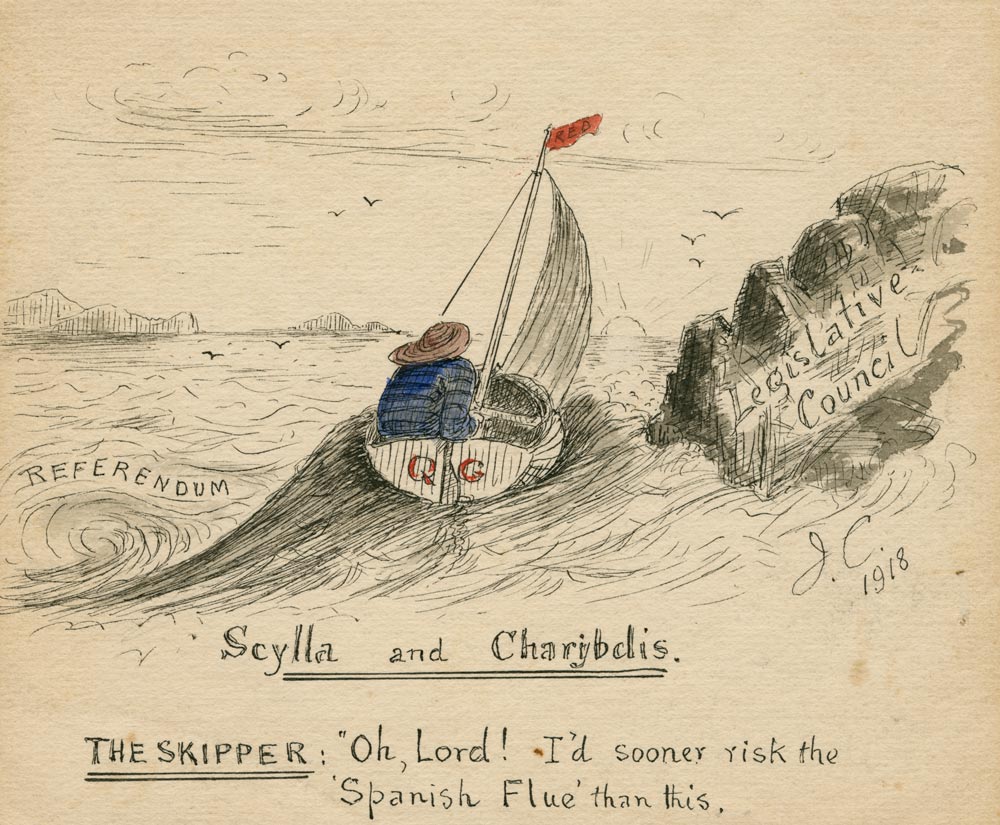 RED
Legislative
Council
REFERENDUM
Q G
J. C. 1918
Scylla and Charijbdis.
THE SKIPPER: "Oh, Lord! I'd sooner risk the
'Spanish Flue' than this.